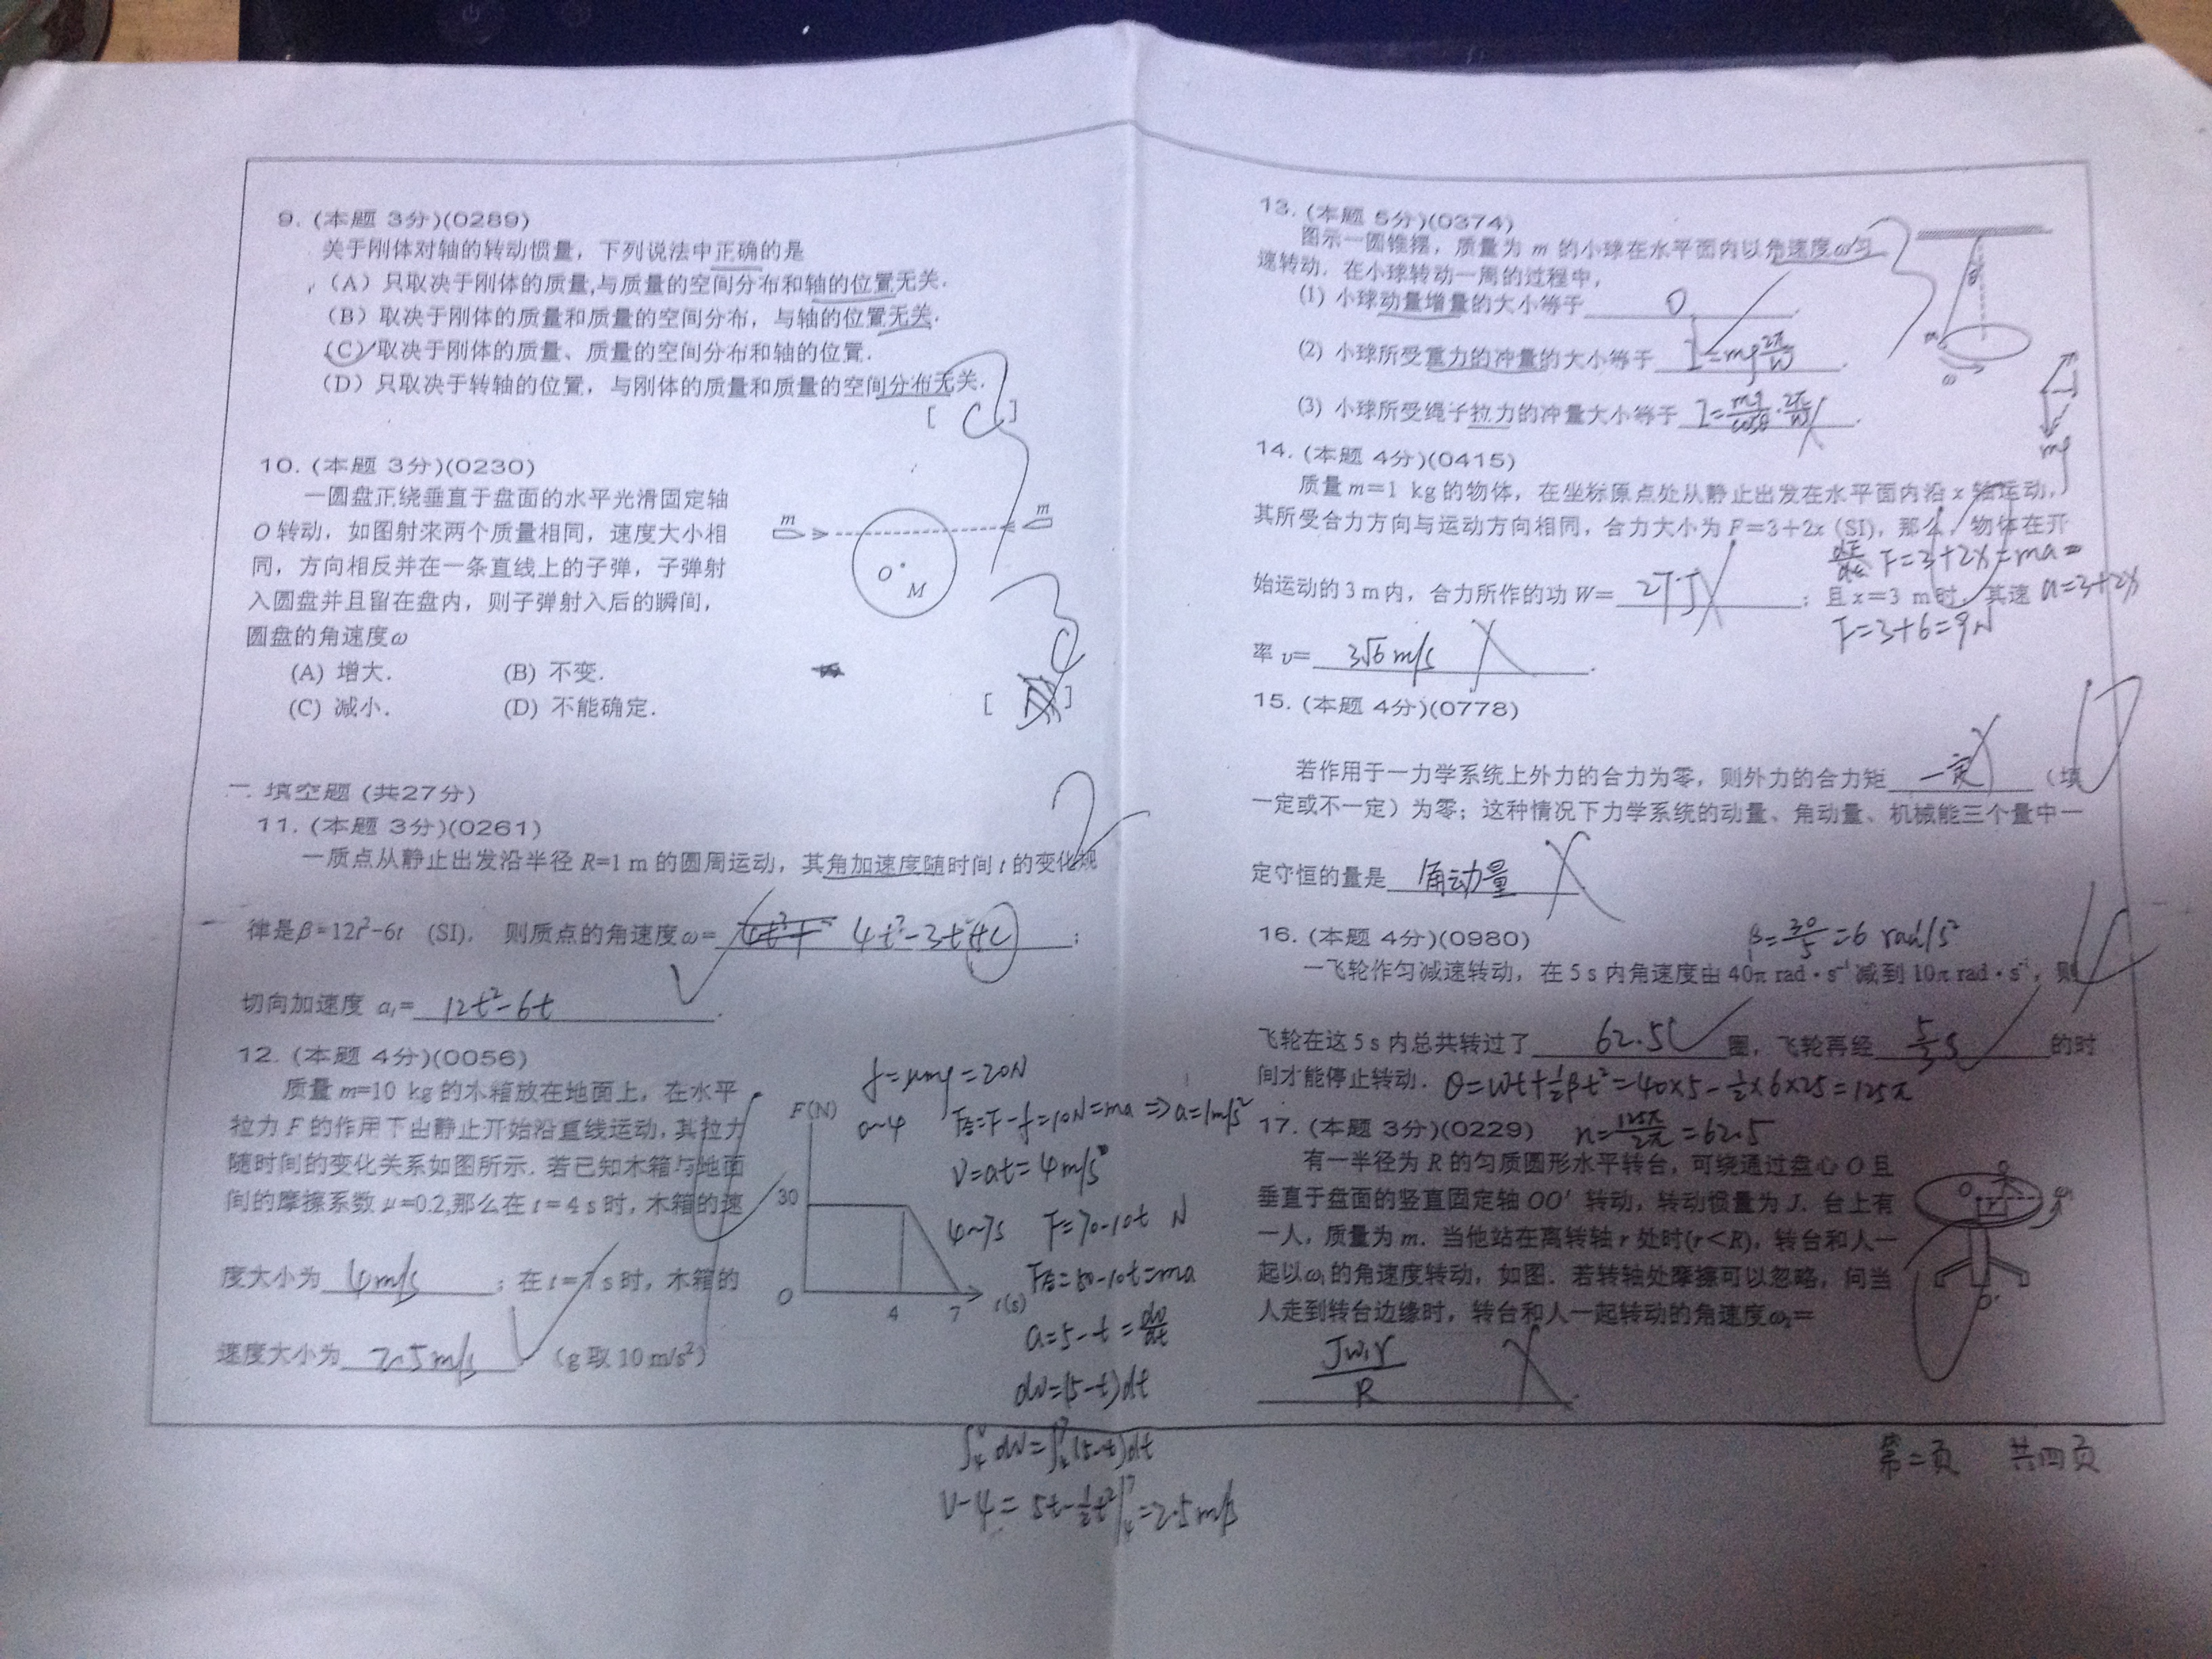 9. (本题 3分)(0289)
关于刚体对轴的转动惯量，下列说法中正确的是
(A) 只取决于刚体的质量,与质量的空间分布和轴的位置无关.
(B) 取决于刚体的质量和质量的空间分布，与轴的位置无关.
(C) 取决于刚体的质量、质量的空间分布和轴的位置.
(D) 只取决于转轴的位置，与刚体的质量和质量的空间分布无关.
[ C ]
10. (本题 3分)(0230)
一圆盘正绕垂直于盘面的水平光滑固定轴
O 转动，如图射来两个质量相同，速度大小相
同，方向相反并在一条直线上的子弹，子弹射
入圆盘并且留在盘内，则子弹射入后的瞬间，
圆盘的角速度ω
(A) 增大. (B) 不变.
(C) 减小. (D) 不能确定.
m m
O M
C
[ ]
一. 填空题 (共27分)
11. (本题 3分)(0261)
一质点从静止出发沿半径 R=1 m 的圆周运动，其角加速度随时间 t 的变化规
律是β=12t²-6t (SI)， 则质点的角速度ω= 4t³-3t²+C ;
切向加速度 aₜ= 12t²-6t .
12. (本题 4分)(0056)
质量 m=10 kg 的木箱放在地面上，在水平
拉力 F 的作用下由静止开始沿直线运动，其拉力
随时间的变化关系如图所示. 若已知木箱与地面
间的摩擦系数 μ=0.2,那么在 t=4 s 时，木箱的速
度大小为 4m/s ；在 t=7 s 时，木箱的
速度大小为 2.5m/s (g 取 10 m/s²)
F(N)
30
O 4 7 t(s)
f=μmg=20N
0~4 F合=F-f=10N=ma ⇒ a=1m/s²
v=at=4m/s
4~7s F=70-10t N
F合=50-10t=ma
a=5-t=dv/dt
dv=(5-t)dt
∫₄ᵛ dv=∫₄⁷(5-t)dt
v-4=5t-½t²|₄⁷=2.5m/s
13. (本题 5分)(0374)
图示一圆锥摆，质量为 m 的小球在水平面内以角速度ω匀
速转动. 在小球转动一周的过程中，
(1) 小球动量增量的大小等于 0 .
(2) 小球所受重力的冲量的大小等于 I=mg 2π/ω .
(3) 小球所受绳子拉力的冲量大小等于 I=mg/cosθ·2π/ω .
θ
m
ω
mg
14. (本题 4分)(0415)
质量 m=1 kg 的物体，在坐标原点处从静止出发在水平面内沿 x 轴运动，
其所受合力方向与运动方向相同，合力大小为 F=3+2x (SI)，那么，物体在开
F=3+2x=ma=
始运动的 3 m 内，合力所作的功 W= 27J ；且 x=3 m 时，其速
a=3+2x
F=3+6=9N
率 v= 3√6 m/s .
15. (本题 4分)(0778)
若作用于一力学系统上外力的合力为零，则外力的合力矩 一定 (填
一定或不一定) 为零；这种情况下力学系统的动量、角动量、机械能三个量中一
定守恒的量是 角动量 .
16. (本题 4分)(0980)
β=30/5=6 rad/s²
一飞轮作匀减速转动，在 5 s 内角速度由 40π rad·s⁻¹减到 10π rad·s⁻¹，则
飞轮在这 5 s 内总共转过了 62.5 圈，飞轮再经 5/3 s 的时
间才能停止转动. θ=ωt+½βt²=40×5-½×6×25=125π
17. (本题 3分)(0229) n=125π/2π=62.5
有一半径为 R 的匀质圆形水平转台，可绕通过盘心 O 且
垂直于盘面的竖直固定轴 OO′ 转动，转动惯量为 J. 台上有
一人，质量为 m. 当他站在离转轴 r 处时(r＜R)，转台和人一
起以ω₁的角速度转动，如图. 若转轴处摩擦可以忽略，问当
人走到转台边缘时，转台和人一起转动的角速度ω₂=
Jω₁r/R .
O r ω₁
O′
第二页 共四页